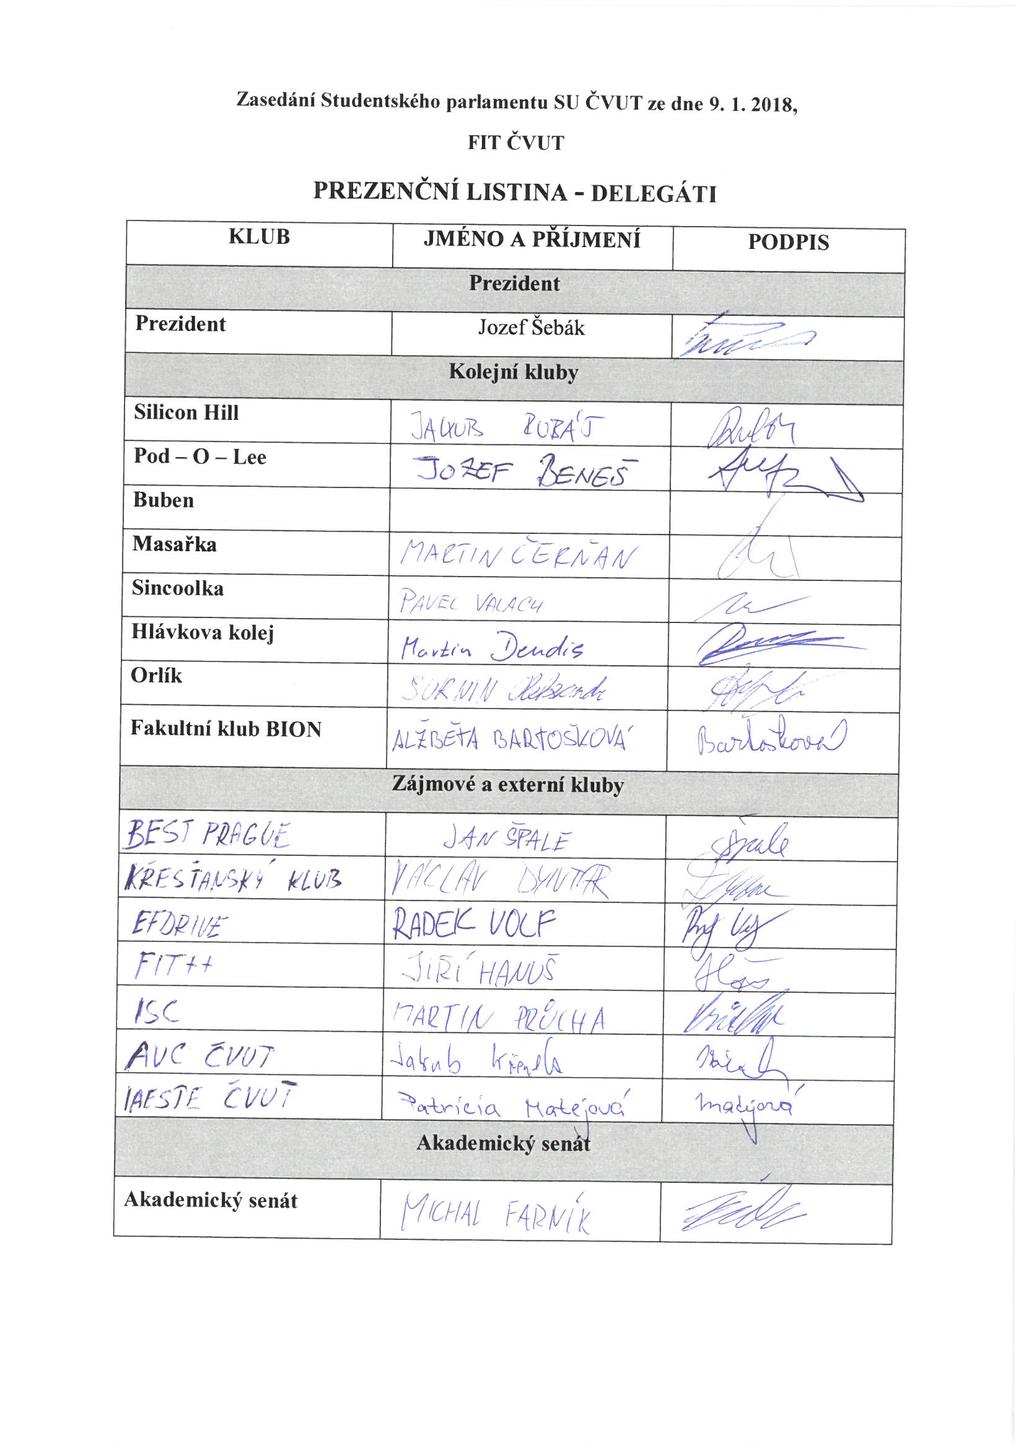 Zasedání Studentského parlamentu SU ČVUT ze dne 9. 1. 2018,
FIT ČVUT
PREZENČNÍ LISTINA - DELEGÁTI
KLUB JMÉNO A PŘÍJMENÍ PODPIS
Prezident
Prezident Jozef Šebák
Kolejní kluby
Silicon Hill JAKUB
Pod – O – Lee JOZEF BENEŠ
Buben
Masařka MARTIN ČERŇAN
Sincoolka PAVEL VALACH
Hlávkova kolej Martin Dendis
Orlík SURNIN
Fakultní klub BION ALŽBĚTA BARTOŠKOVÁ Bartošková
Zájmové a externí kluby
BEST PRAGUE JAN ŠPALE Špale
KŘESŤANSKÝ KLUB VÁCLAV DYNTAR
EFDRIVE RADEK VOLF
FIT++ JIŘÍ HANUŠ
ISC MARTIN PRŮCHA
AVC ČVUT Jakub
IAESTE ČVUT Patrícia Matejová Matejová
Akademický senát
Akademický senát MICHAL FARNÍK